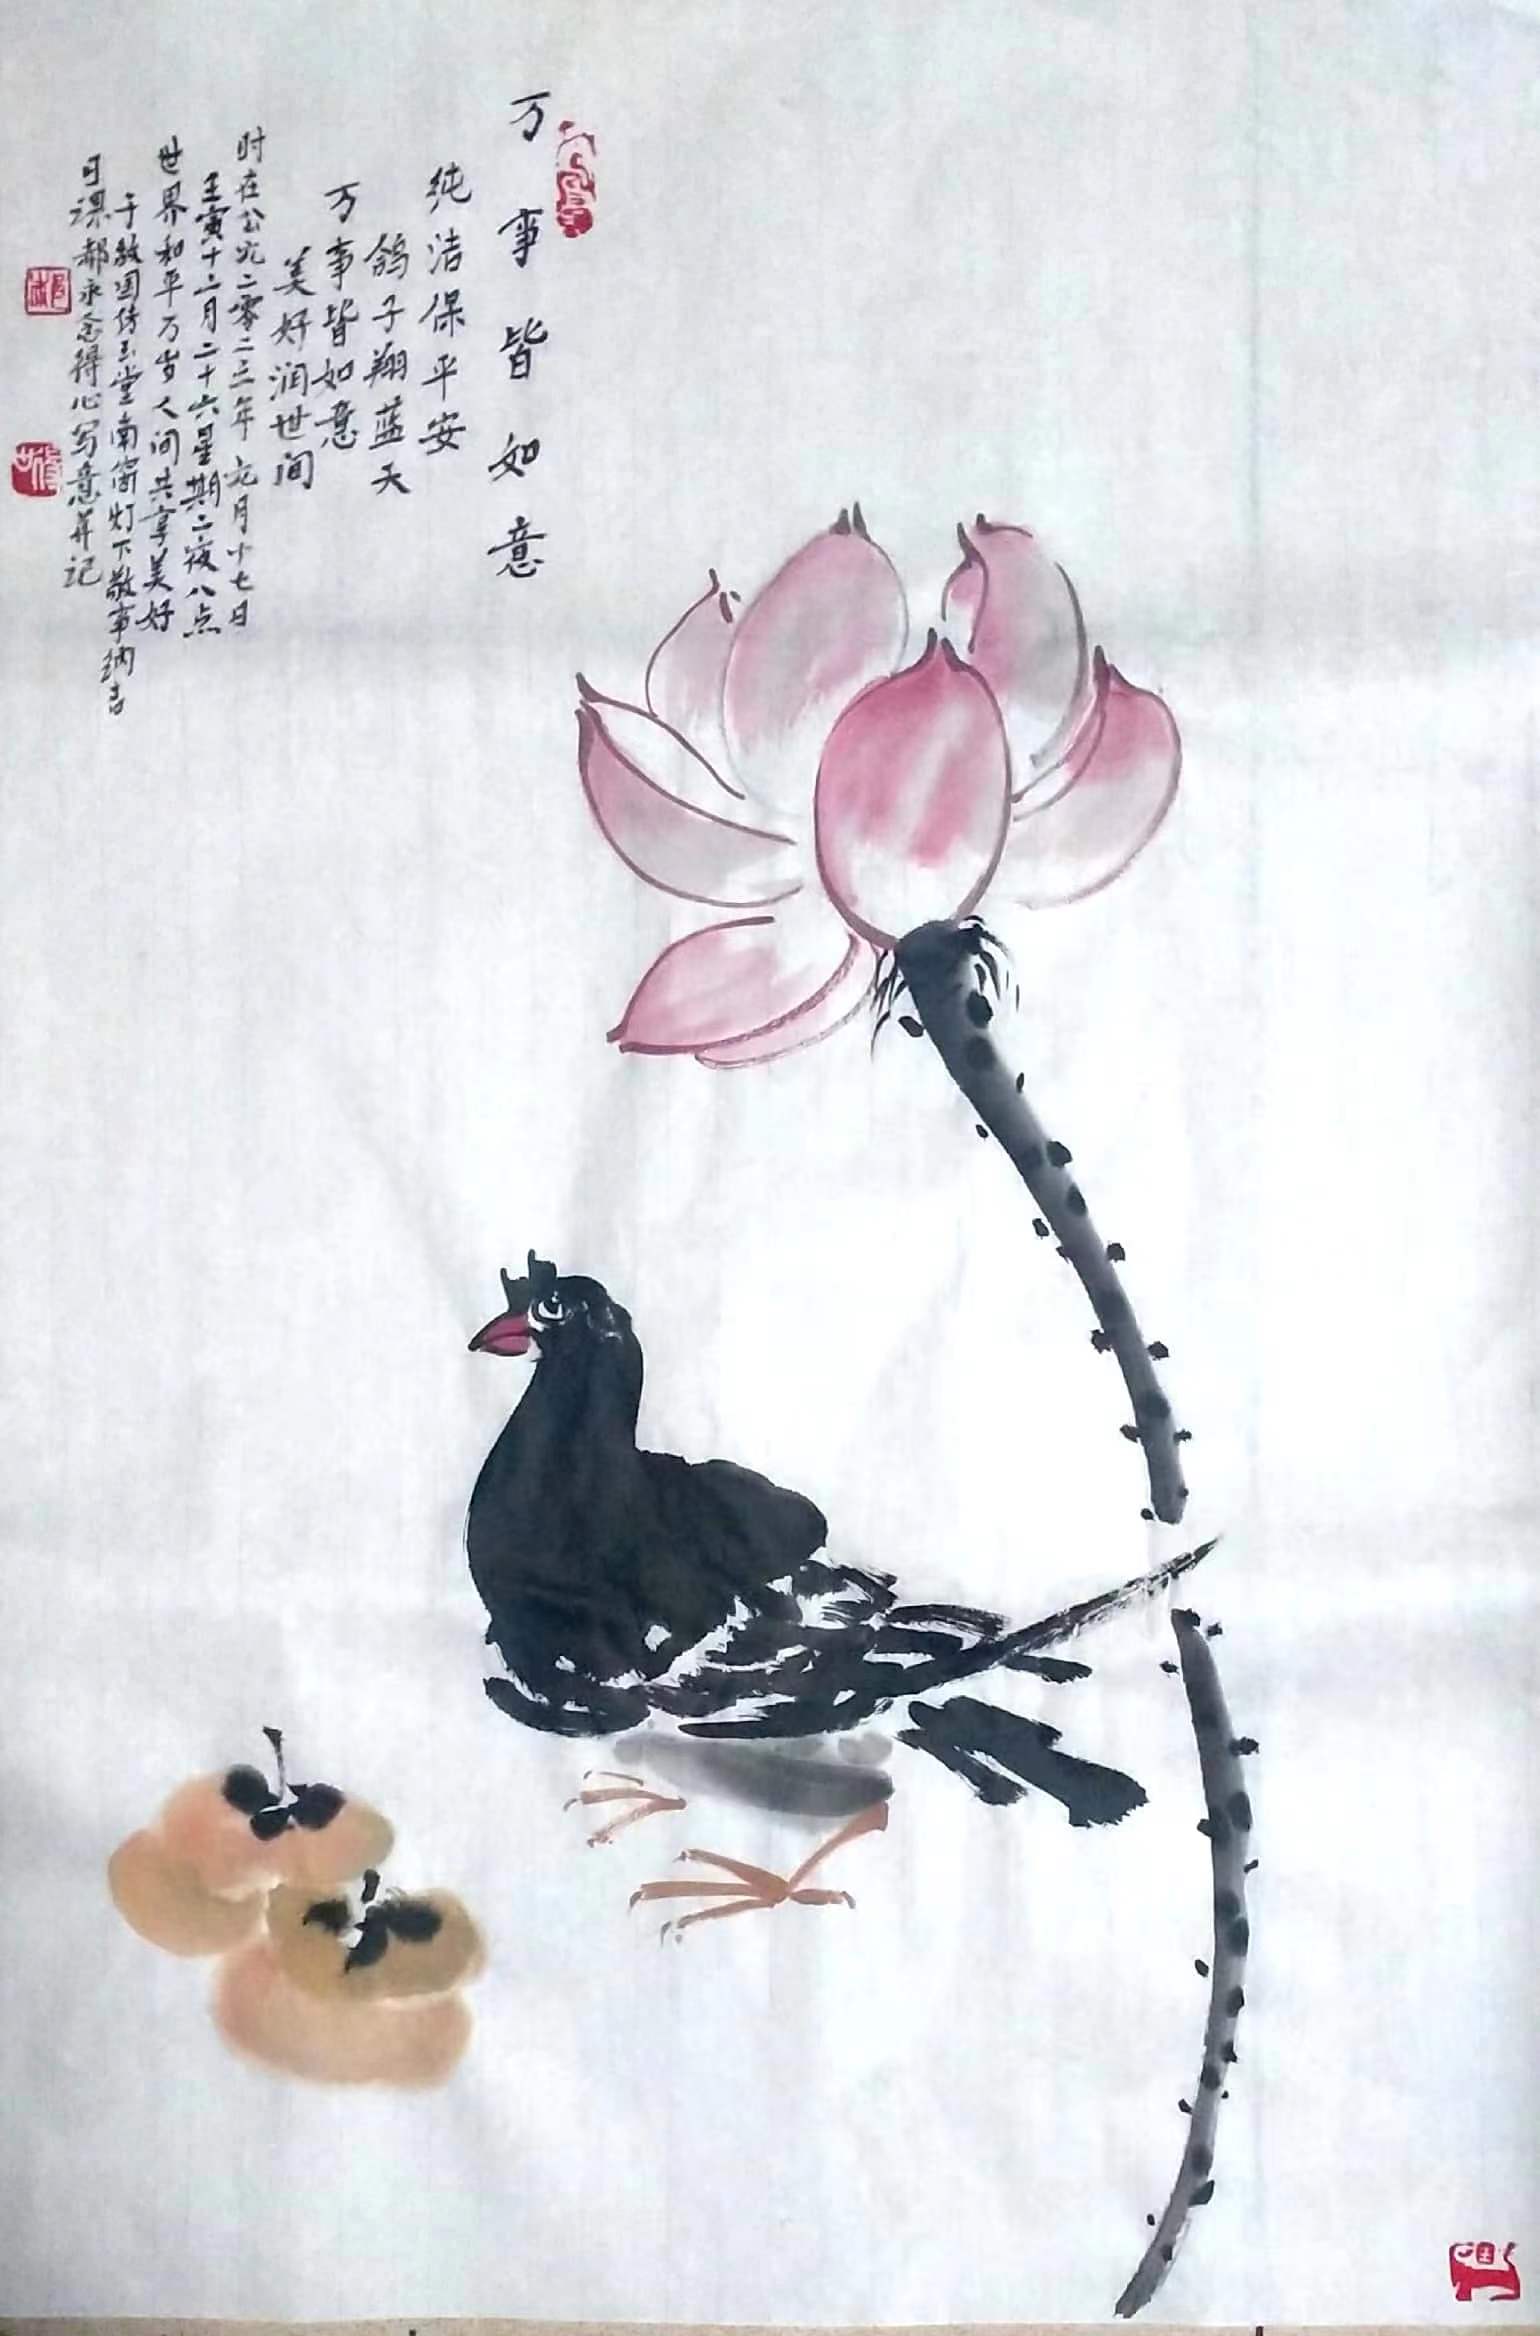 万事皆如意
纯洁保平安
鸽子翔蓝天
万事皆如意
美好润世间
时在公元二零二三年元月十七日
壬寅十二月二十六星期二夜八点
世界和平万岁人间共享美好
于 国 玉堂南窗灯下敬事纳吉
日课郝永 得心写意并记